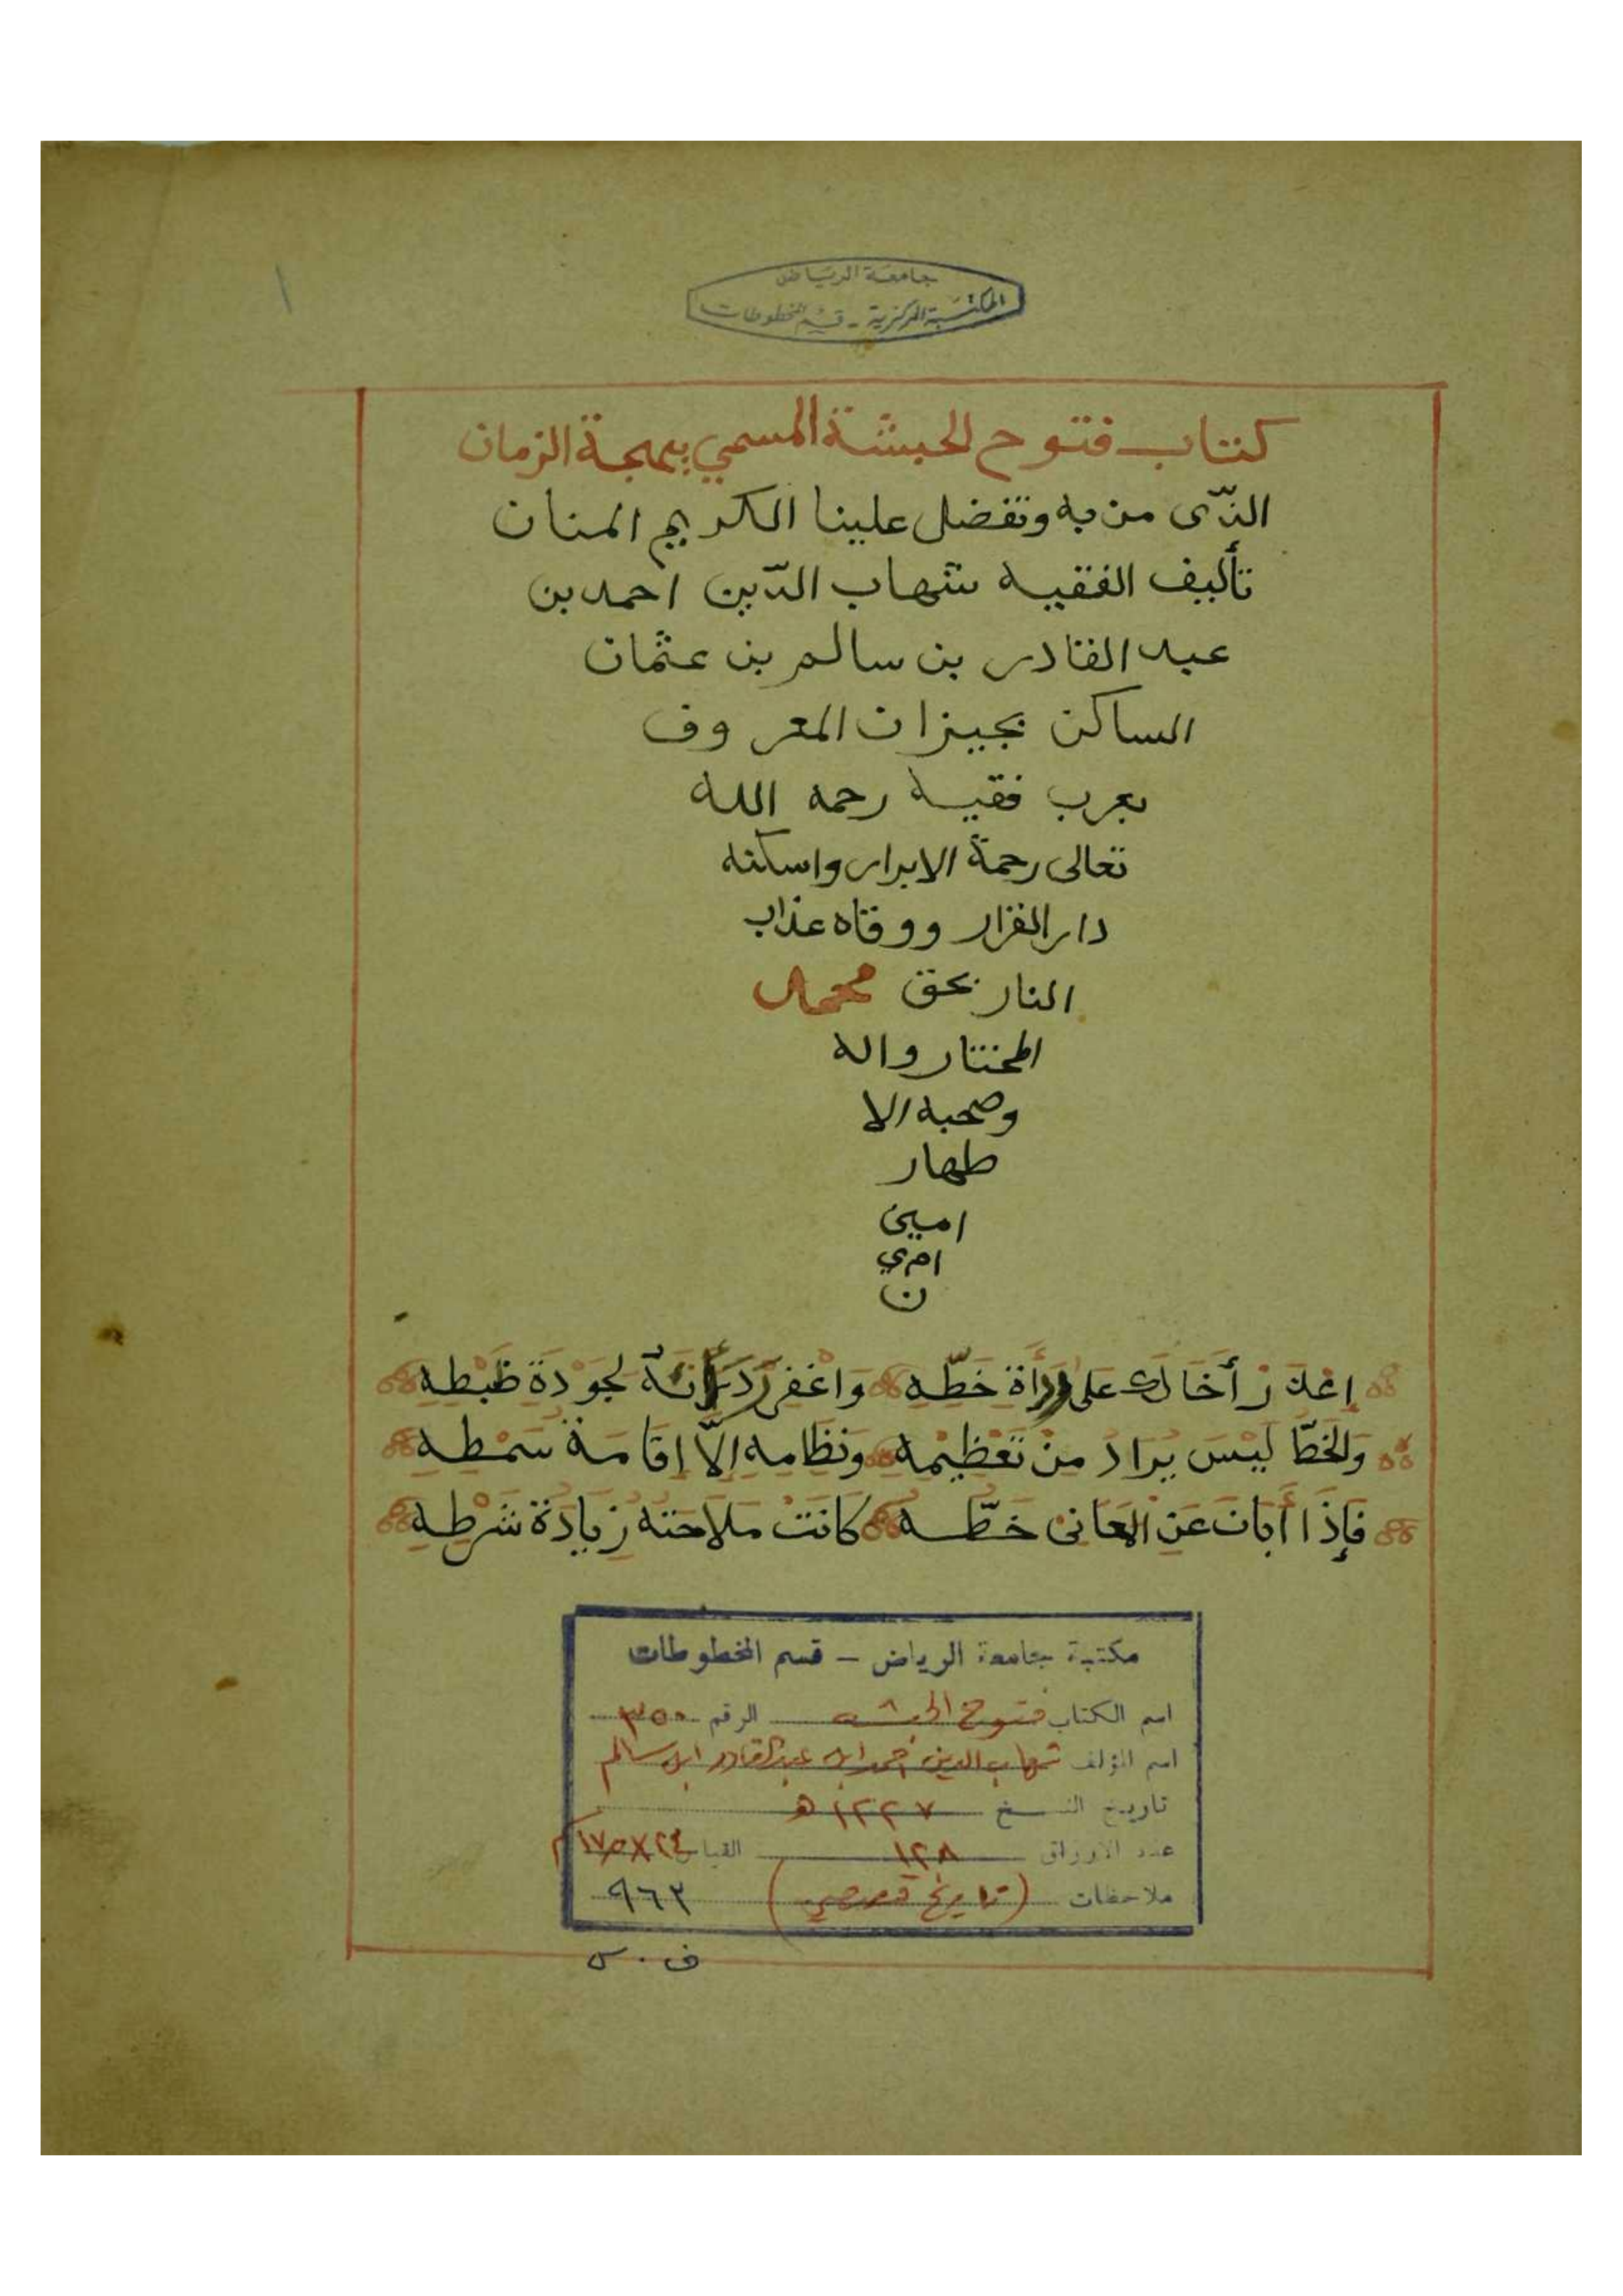 جامعة الرياض
المكتبة المركزية - قسم المخطوطات
١
كتاب فتوح الحبشة المسمي ببهجة الزمان
الذّى من به وتفضل علينا الكريم المنان
تأليف الفقيه شهاب الدّين احمد بن
عبد القادر بن سالم بن عثمان
الساكن بجيزان المعروف
بعرب فقيه رحمه الله
تعالى رحمة الابرار واسكنه
دار القرار ووقاه عذاب
النار بحق محمد
المختار واله
وصحبه الا
طهار
امين
امي
ن
إعْذرْ أَخَاكَ على رداأة خَطِّهِ وَاغْفِرْ رَدَاَتَهُ لجَوْدَةِ ظَبْطِهِ
وَالخَطّ لَيْسَ يُرَادُ مِنْ تَعْظِيْمِهِ وَنظَامِهِ إلاَّ إقَامَةُ سَمْطِهِ
فَإِذَا أَبَانَ عَنِ المعَانىْ خَطّهُ كَانَتْ مَلاَحَتهُ زِيَادَةَ شَرْطِهِ
مكتبة جامعة الرياض - قسم المخطوطات
اسم الكتاب فتوح الحبشه الرقم ٣٥٠
اسم المؤلف شهاب الدين احمد ابن عبد القادر ابن سالم
تاريخ النسخ ١٢٢٧ هـ
عدد الاوراق ١٢٨ القياس ٢٤×١٧٥ م
ملاحظات (تاريخ قصصي) ٩٦٣
ف . س